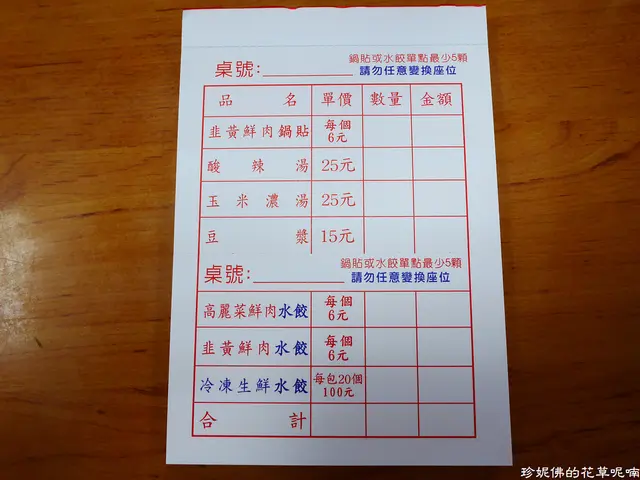 鍋貼或水餃單點最少5顆
桌號:
請勿任意變換座位
品名 單價 數量 金額
韭黃鮮肉鍋貼 每個6元
酸辣湯 25元
玉米濃湯 25元
豆漿 15元
鍋貼或水餃單點最少5顆
桌號:
請勿任意變換座位
高麗菜鮮肉水餃 每個6元
韭黃鮮肉水餃 每個6元
冷凍生鮮水餃 每包20個100元
合計
珍妮佛的花草呢喃